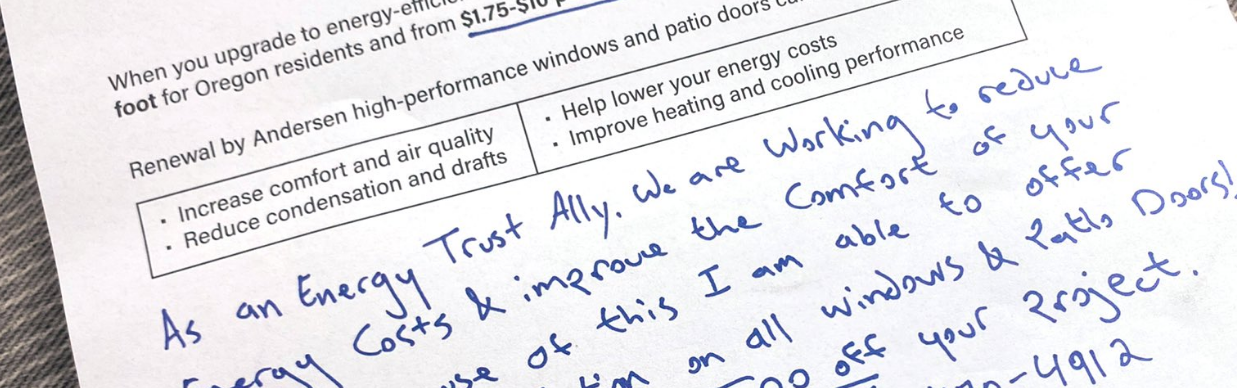 When you upgrade to energy-effici
foot for Oregon residents and from $1.75-$10
Renewal by Andersen high-performance windows and patio doors
• Increase comfort and air quality
• Reduce condensation and drafts
• Help lower your energy costs
• Improve heating and cooling performance
As an Energy Trust Ally. We are Working to reduce
Energy Costs & improve the Comfort of your
use of this I am able to offer
on all windows & Patio Doors!
00 off your Project.
-4912